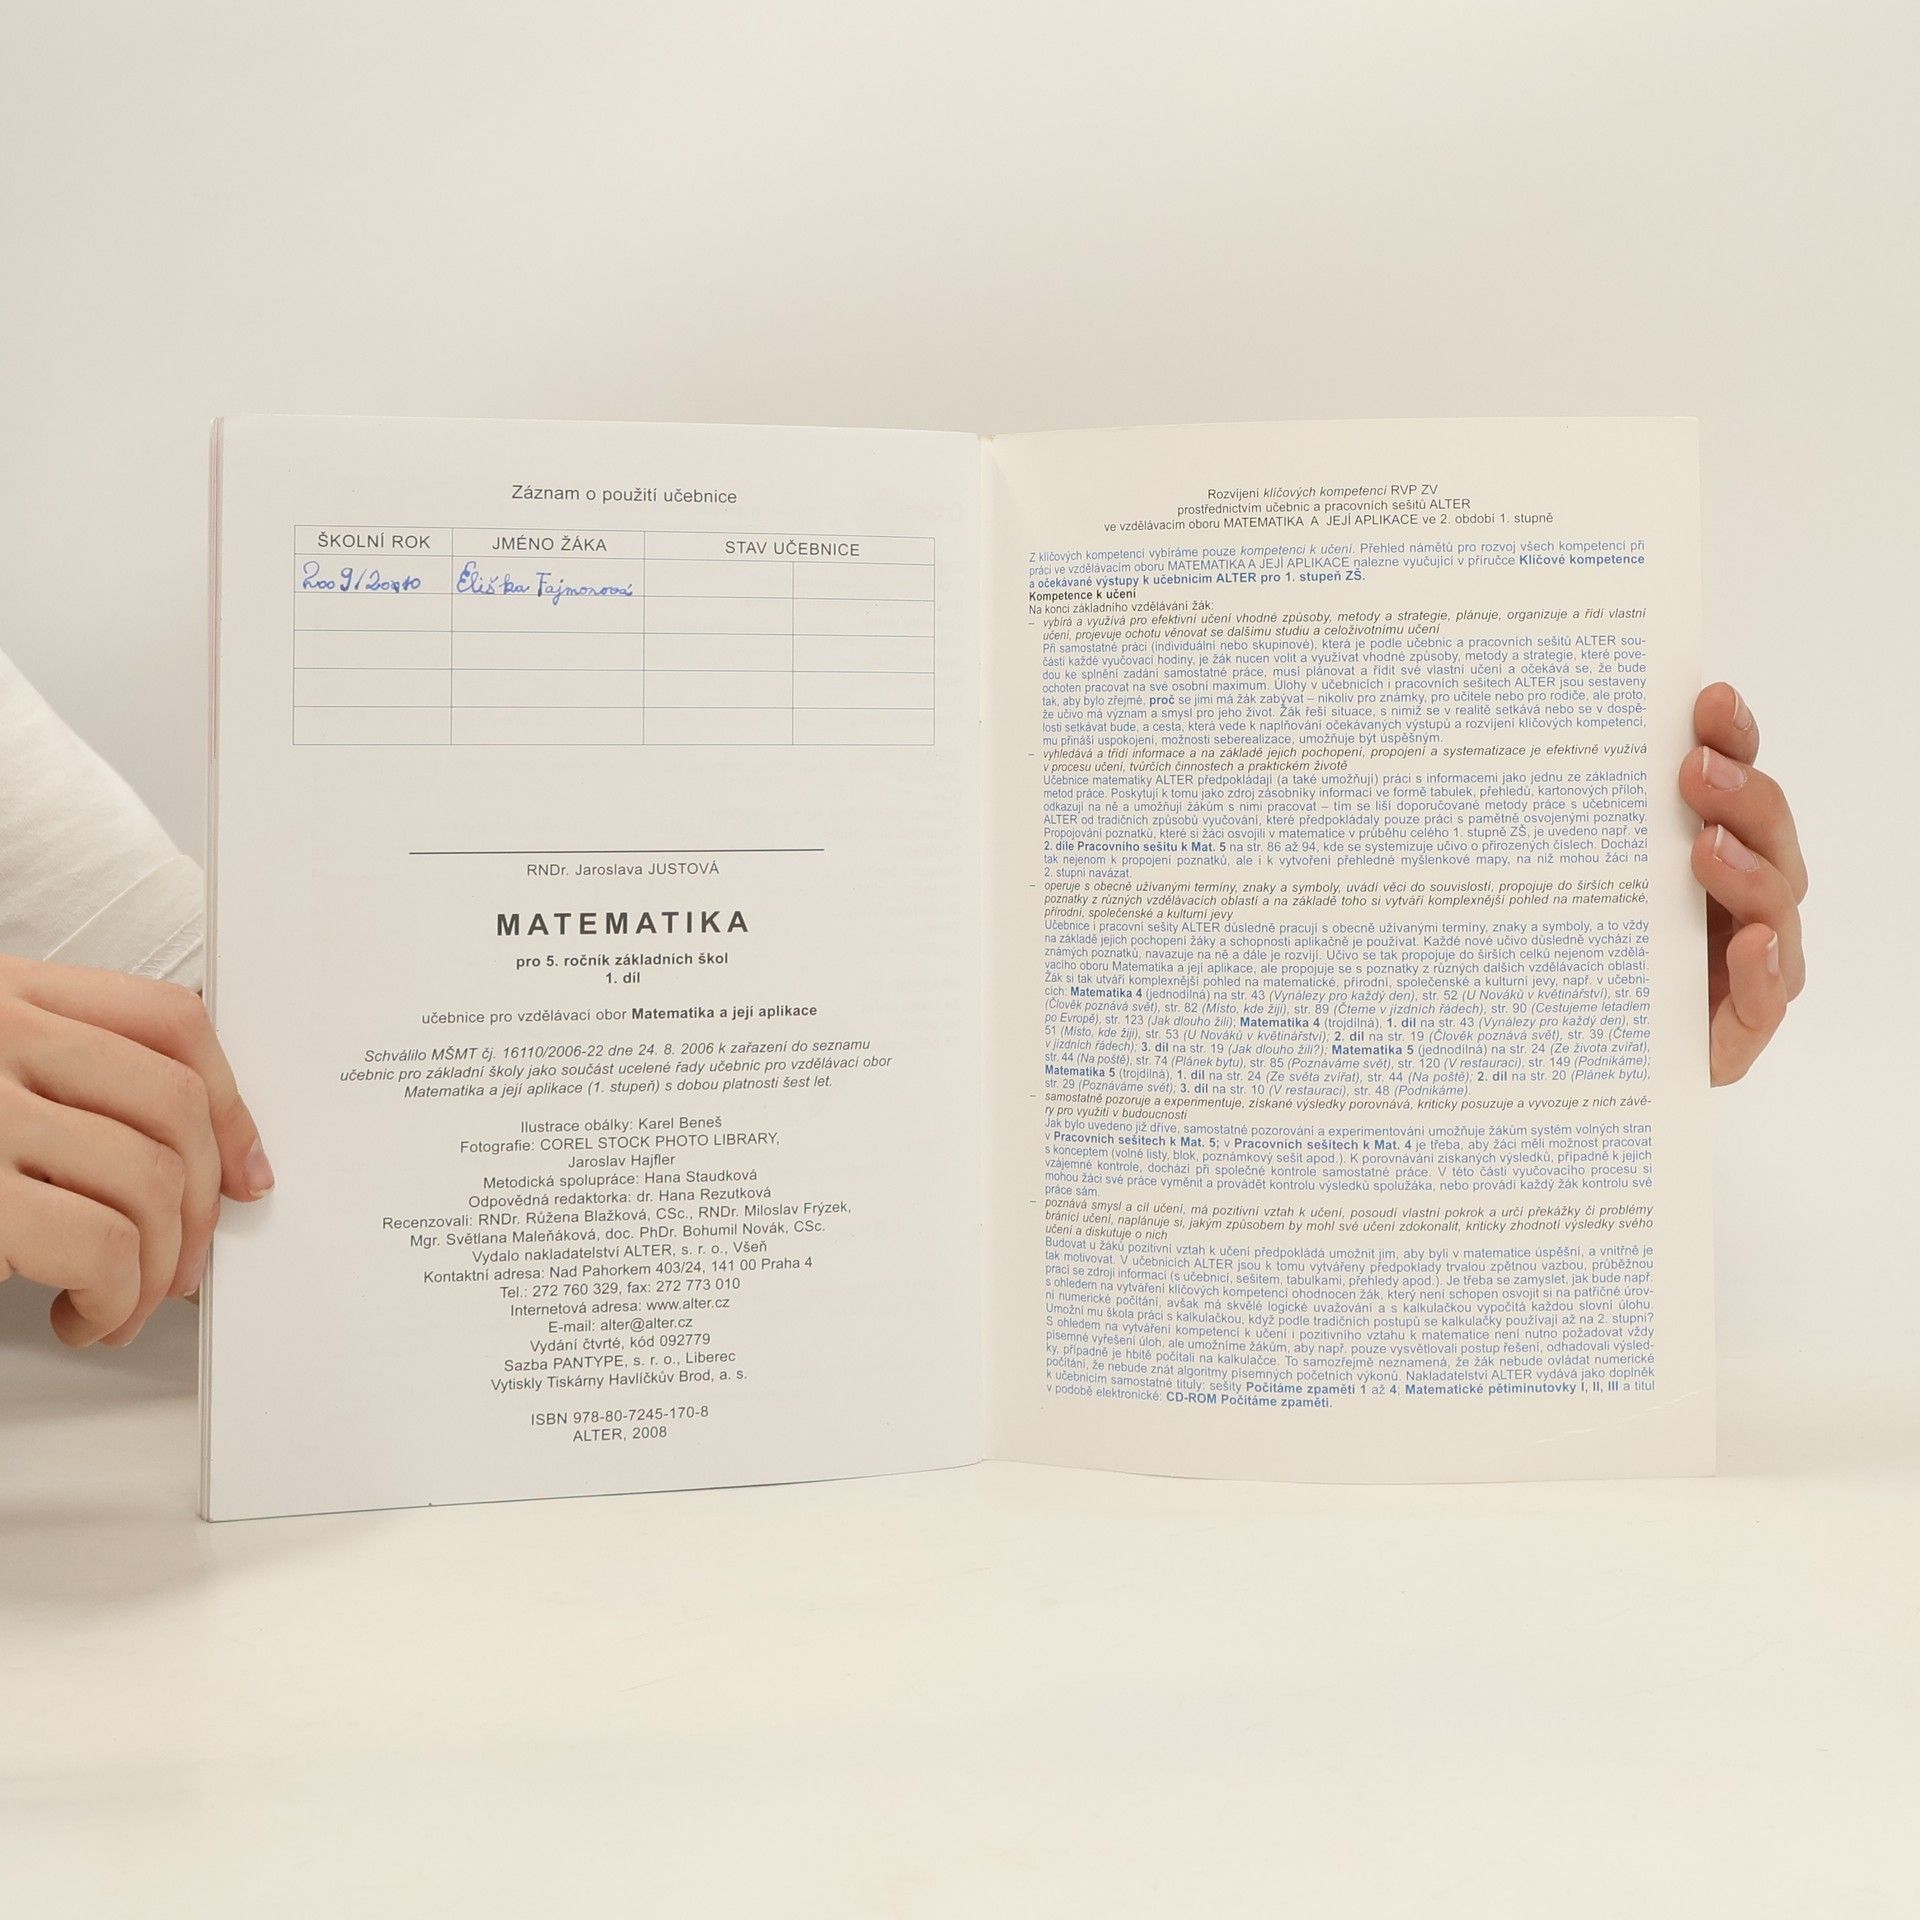 Záznam o použití učebnice
ŠKOLNÍ ROK JMÉNO ŽÁKA STAV UČEBNICE
2009/2010 Eliška Fajmonová
RNDr. Jaroslava JUSTOVÁ
MATEMATIKA
pro 5. ročník základních škol
1. díl
učebnice pro vzdělávací obor Matematika a její aplikace
Schválilo MŠMT čj. 16110/2006-22 dne 24. 8. 2006 k zařazení do seznamu
učebnic pro základní školy jako součást ucelené řady učebnic pro vzdělávací obor
Matematika a její aplikace (1. stupeň) s dobou platnosti šest let.
Ilustrace obálky: Karel Beneš
Fotografie: COREL STOCK PHOTO LIBRARY,
Jaroslav Hajfler
Metodická spolupráce: Hana Staudková
Odpovědná redaktorka: dr. Hana Rezutková
Recenzovali: RNDr. Růžena Blažková, CSc., RNDr. Miloslav Frýzek,
Mgr. Světlana Maleňáková, doc. PhDr. Bohumil Novák, CSc.
Vydalo nakladatelství ALTER, s. r. o., Všeň
Kontaktní adresa: Nad Pahorkem 403/24, 141 00 Praha 4
Tel.: 272 760 329, fax: 272 773 010
Internetová adresa: www.alter.cz
E-mail: alter@alter.cz
Vydání čtvrté, kód 092779
Sazba PANTYPE, s. r. o., Liberec
Vytiskly Tiskárny Havlíčkův Brod, a. s.
ISBN 978-80-7245-170-8
ALTER, 2008
Rozvíjení klíčových kompetencí RVP ZV
prostřednictvím učebnic a pracovních sešitů ALTER
ve vzdělávacím oboru MATEMATIKA A JEJÍ APLIKACE ve 2. období 1. stupně
Z klíčových kompetencí vybíráme pouze kompetenci k učení. Přehled námětů pro rozvoj všech kompetencí při
práci ve vzdělávacím oboru MATEMATIKA A JEJÍ APLIKACE nalezne vyučující v příručce Klíčové kompetence
a očekávané výstupy k učebnicím ALTER pro 1. stupeň ZŠ.
Kompetence k učení
Na konci základního vzdělávání žák:
– vybírá a využívá pro efektivní učení vhodné způsoby, metody a strategie, plánuje, organizuje a řídí vlastní
učení, projevuje ochotu věnovat se dalšímu studiu a celoživotnímu učení
Při samostatné práci (individuální nebo skupinové), která je podle učebnic a pracovních sešitů ALTER sou-
částí každé vyučovací hodiny, je žák nucen volit a využívat vhodné způsoby, metody a strategie, které pove-
dou ke splnění zadání samostatné práce, musí plánovat a řídit své vlastní učení a očekává se, že bude
ochoten pracovat na své osobní maximum. Úlohy v učebnicích i pracovních sešitech ALTER jsou sestaveny
tak, aby bylo zřejmé, proč se jimi má žák zabývat – nikoliv pro známky, pro učitele nebo pro rodiče, ale proto,
že učivo má význam a smysl pro jeho život. Žák řeší situace, s nimiž se v realitě setkává nebo se v dospě-
losti setkávat bude, a cesta, která vede k naplňování očekávaných výstupů a rozvíjení klíčových kompetencí,
mu přináší uspokojení, možnosti seberealizace, umožňuje být úspěšným.
– vyhledává a třídí informace a na základě jejich pochopení, propojení a systematizace je efektivně využívá
v procesu učení, tvůrčích činnostech a praktickém životě
Učebnice matematiky ALTER předpokládají (a také umožňují) práci s informacemi jako jednu ze základních
metod práce. Poskytují k tomu jako zdroj zásobníky informací ve formě tabulek, přehledů, kartonových příloh,
odkazují na ně a umožňují žákům s nimi pracovat – tím se liší doporučované metody práce s učebnicemi
ALTER od tradičních způsobů vyučování, které předpokládaly pouze práci s pamětně osvojenými poznatky.
Propojování poznatků, které si žáci osvojili v matematice v průběhu celého 1. stupně ZŠ, je uvedeno např. ve
2. díle Pracovního sešitu k Mat. 5 na str. 86 až 94, kde se systemizuje učivo o přirozených číslech. Dochází
tak nejenom k propojení poznatků, ale i k vytvoření přehledné myšlenkové mapy, na niž mohou žáci na
2. stupni navázat.
– operuje s obecně užívanými termíny, znaky a symboly, uvádí věci do souvislostí, propojuje do širších celků
poznatky z různých vzdělávacích oblastí a na základě toho si vytváří komplexnější pohled na matematické,
přírodní, společenské a kulturní jevy
Učebnice i pracovní sešity ALTER důsledně pracují s obecně užívanými termíny, znaky a symboly, a to vždy
na základě jejich pochopení žáky a schopnosti aplikačně je používat. Každé nové učivo důsledně vychází ze
známých poznatků, navazuje na ně a dále je rozvíjí. Učivo se tak propojuje do širších celků nejenom vzdělá-
vacího oboru Matematika a její aplikace, ale propojuje se s poznatky z různých dalších vzdělávacích oblastí.
Žák si tak utváří komplexnější pohled na matematické, přírodní, společenské a kulturní jevy, např. v učebni-
cích: Matematika 4 (jednodílná) na str. 43 (Vynálezy pro každý den), str. 52 (U Nováků v květinářství), str. 69
(Člověk poznává svět), str. 82 (Místo, kde žiji), str. 89 (Čteme v jízdních řádech), str. 90 (Cestujeme letadlem
po Evropě), str. 123 (Jak dlouho žijí); Matematika 4 (trojdílná), 1. díl na str. 43 (Vynálezy pro každý den), str.
51 (Místo, kde žiji), str. 53 (U Nováků v květinářství); 2. díl na str. 19 (Člověk poznává svět), str. 39 (Čteme
v jízdních řádech); 3. díl na str. 19 (Jak dlouho žijí?); Matematika 5 (jednodílná) na str. 24 (Ze života zvířat),
str. 44 (Na poště), str. 74 (Plánek bytu), str. 85 (Poznáváme svět), str. 120 (V restauraci), str. 149 (Podnikáme);
Matematika 5 (trojdílná), 1. díl na str. 24 (Ze světa zvířat), str. 44 (Na poště); 2. díl na str. 20 (Plánek bytu),
str. 29 (Poznáváme svět); 3. díl na str. 10 (V restauraci), str. 48 (Podnikáme).
– samostatně pozoruje a experimentuje, získané výsledky porovnává, kriticky posuzuje a vyvozuje z nich závě-
ry pro využití v budoucnosti
Jak bylo uvedeno již dříve, samostatné pozorování a experimentování umožňuje žákům systém volných stran
v Pracovních sešitech k Mat. 5; v Pracovních sešitech k Mat. 4 je třeba, aby žáci měli možnost pracovat
s konceptem (volné listy, blok, poznámkový sešit apod.). K porovnávání získaných výsledků, případně k jejich
vzájemné kontrole, dochází při společné kontrole samostatné práce. V této části vyučovacího procesu si
mohou žáci své práce vyměnit a provádět kontrolu výsledků spolužáka, nebo provádí každý žák kontrolu své
práce sám.
– poznává smysl a cíl učení, má pozitivní vztah k učení, posoudí vlastní pokrok a určí překážky či problémy
bránící učení, naplánuje si, jakým způsobem by mohl své učení zdokonalit, kriticky zhodnotí výsledky svého
učení a diskutuje o nich
Budovat u žáků pozitivní vztah k učení předpokládá umožnit jim, aby byli v matematice úspěšní, a vnitřně je
tak motivovat. V učebnicích ALTER jsou k tomu vytvářeny předpoklady trvalou zpětnou vazbou, průběžnou
prací se zdroji informací (s učebnicí, sešitem, tabulkami, přehledy apod.). Je třeba se zamyslet, jak bude např.
s ohledem na vytváření klíčových kompetencí ohodnocen žák, který není schopen osvojit si na patřičné úrov-
ni numerické počítání, avšak má skvělé logické uvažování a s kalkulačkou vypočítá každou slovní úlohu.
Umožní mu škola práci s kalkulačkou, když podle tradičních postupů se kalkulačky používají až na 2. stupni?
S ohledem na vytváření kompetencí k učení i pozitivního vztahu k matematice není nutno požadovat vždy
písemné vyřešení úloh, ale umožníme žákům, aby např. pouze vysvětlovali postup řešení, odhadovali výsled-
ky, případně je hbitě počítali na kalkulačce. To samozřejmě neznamená, že žák nebude ovládat numerické
počítání, že nebude znát algoritmy písemných početních výkonů. Nakladatelství ALTER vydává jako doplněk
k učebnicím samostatné tituly: sešity Počítáme zpaměti 1 až 4; Matematické pětiminutovky I, II, III a titul
v podobě elektronické: CD-ROM Počítáme zpaměti.